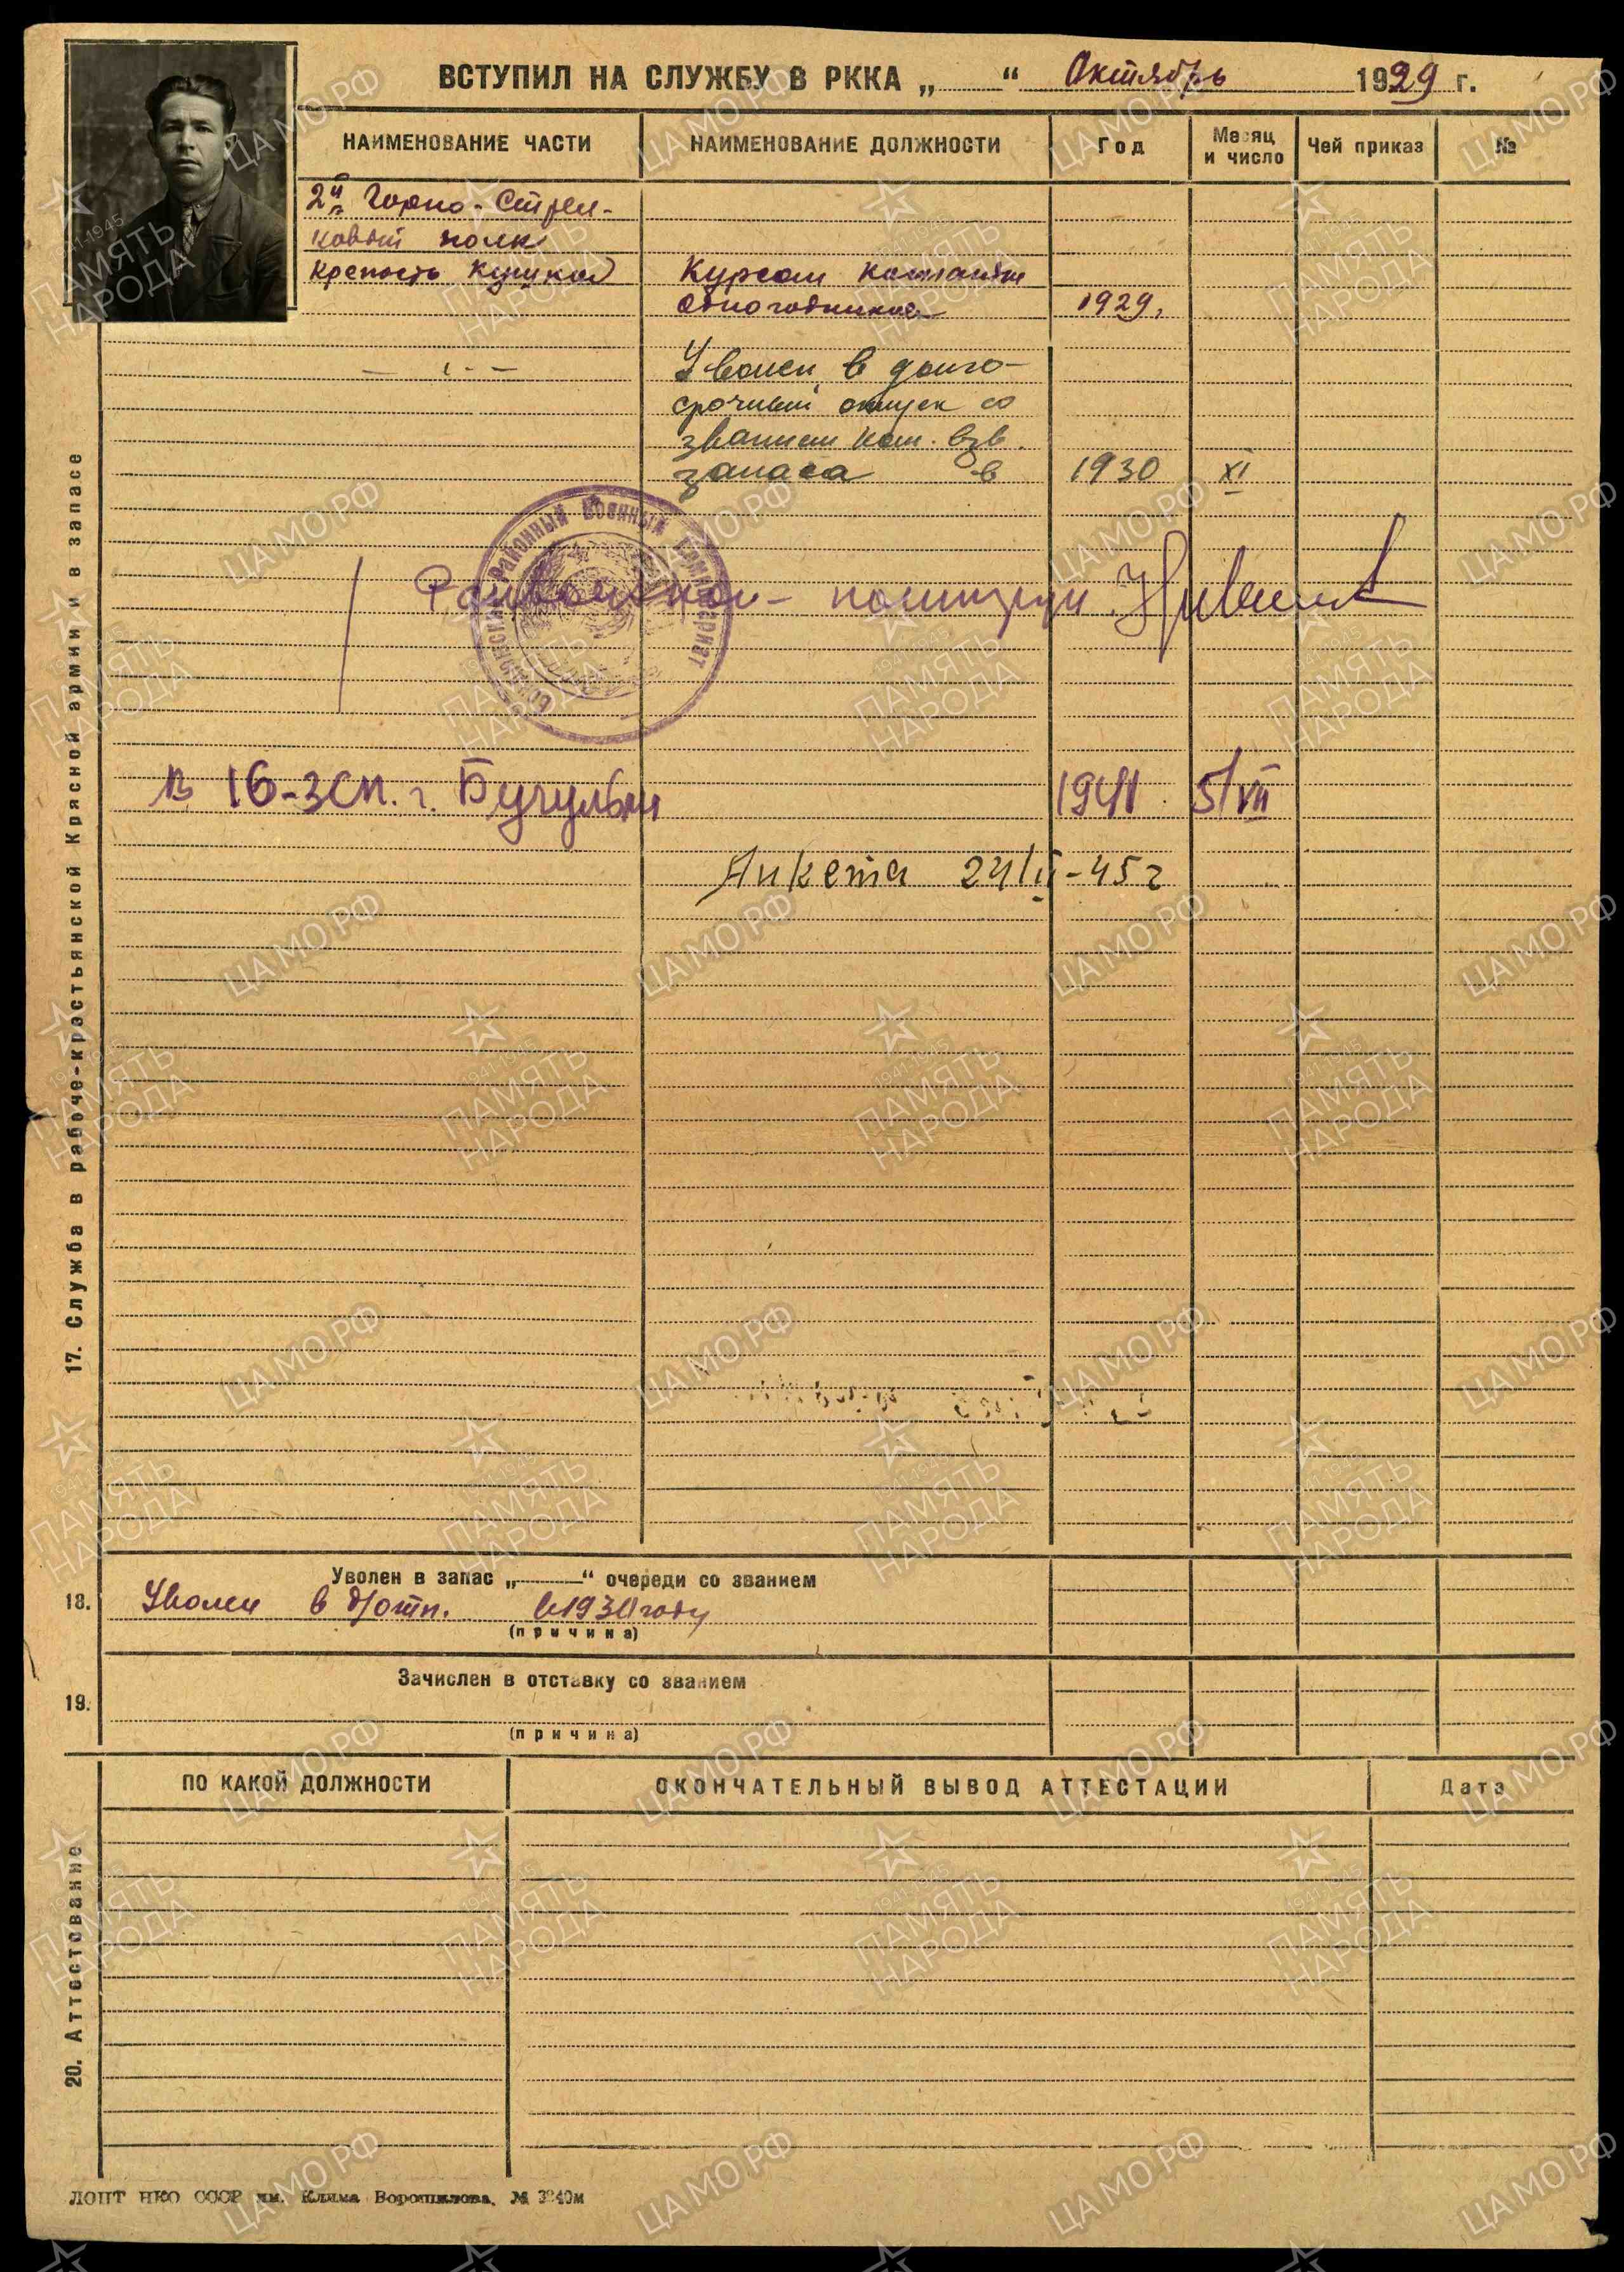 ВСТУПИЛ НА СЛУЖБУ В РККА „ “ Октябрь 1929 г.
НАИМЕНОВАНИЕ ЧАСТИ НАИМЕНОВАНИЕ ДОЛЖНОСТИ Год Месяц и число Чей приказ №
2й Горно-Стрел-
ковый полк
крепость Кушка Курсант команды
одногодников 1929.
Уволен в долго-
срочный отпуск со
званием ком. взв.
запаса в 1930 XI
Районный Военный Комиссариат
политрук
в 16-зсп. г. Бугульм 1941 5/VII
Анкета 24/II-45 г
17. Служба в рабоче-крестьянской Красной армии и в запасе
18. Уволен в запас „ “ очереди со званием
Уволен в д/отп. в 1930 году
(причина)
19. Зачислен в отставку со званием
(причина)
ПО КАКОЙ ДОЛЖНОСТИ ОКОНЧАТЕЛЬНЫЙ ВЫВОД АТТЕСТАЦИИ Дата
20. Аттестование
ЛОПТ НКО СССР им. Клима Ворошилова. № 3240м
ЦАМО.РФ
1941-1945
ПАМЯТЬ
НАРОДА